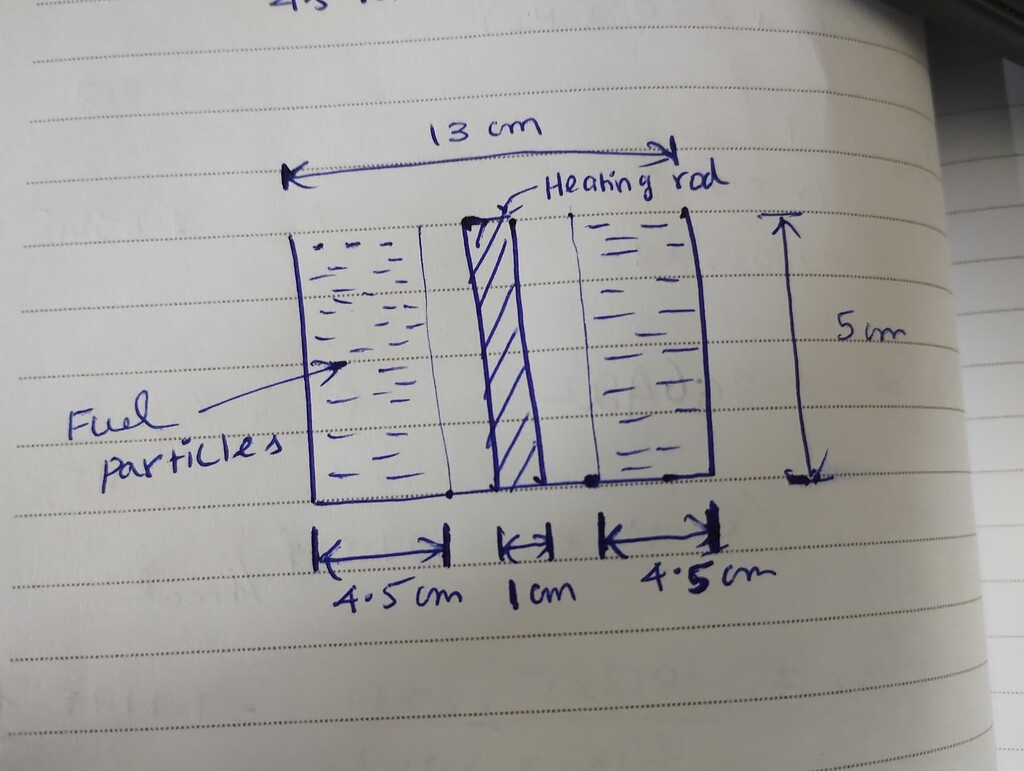 13 cm
Heating rod
5 cm
Fuel
particles
4.5 cm
1 cm
4.5 cm